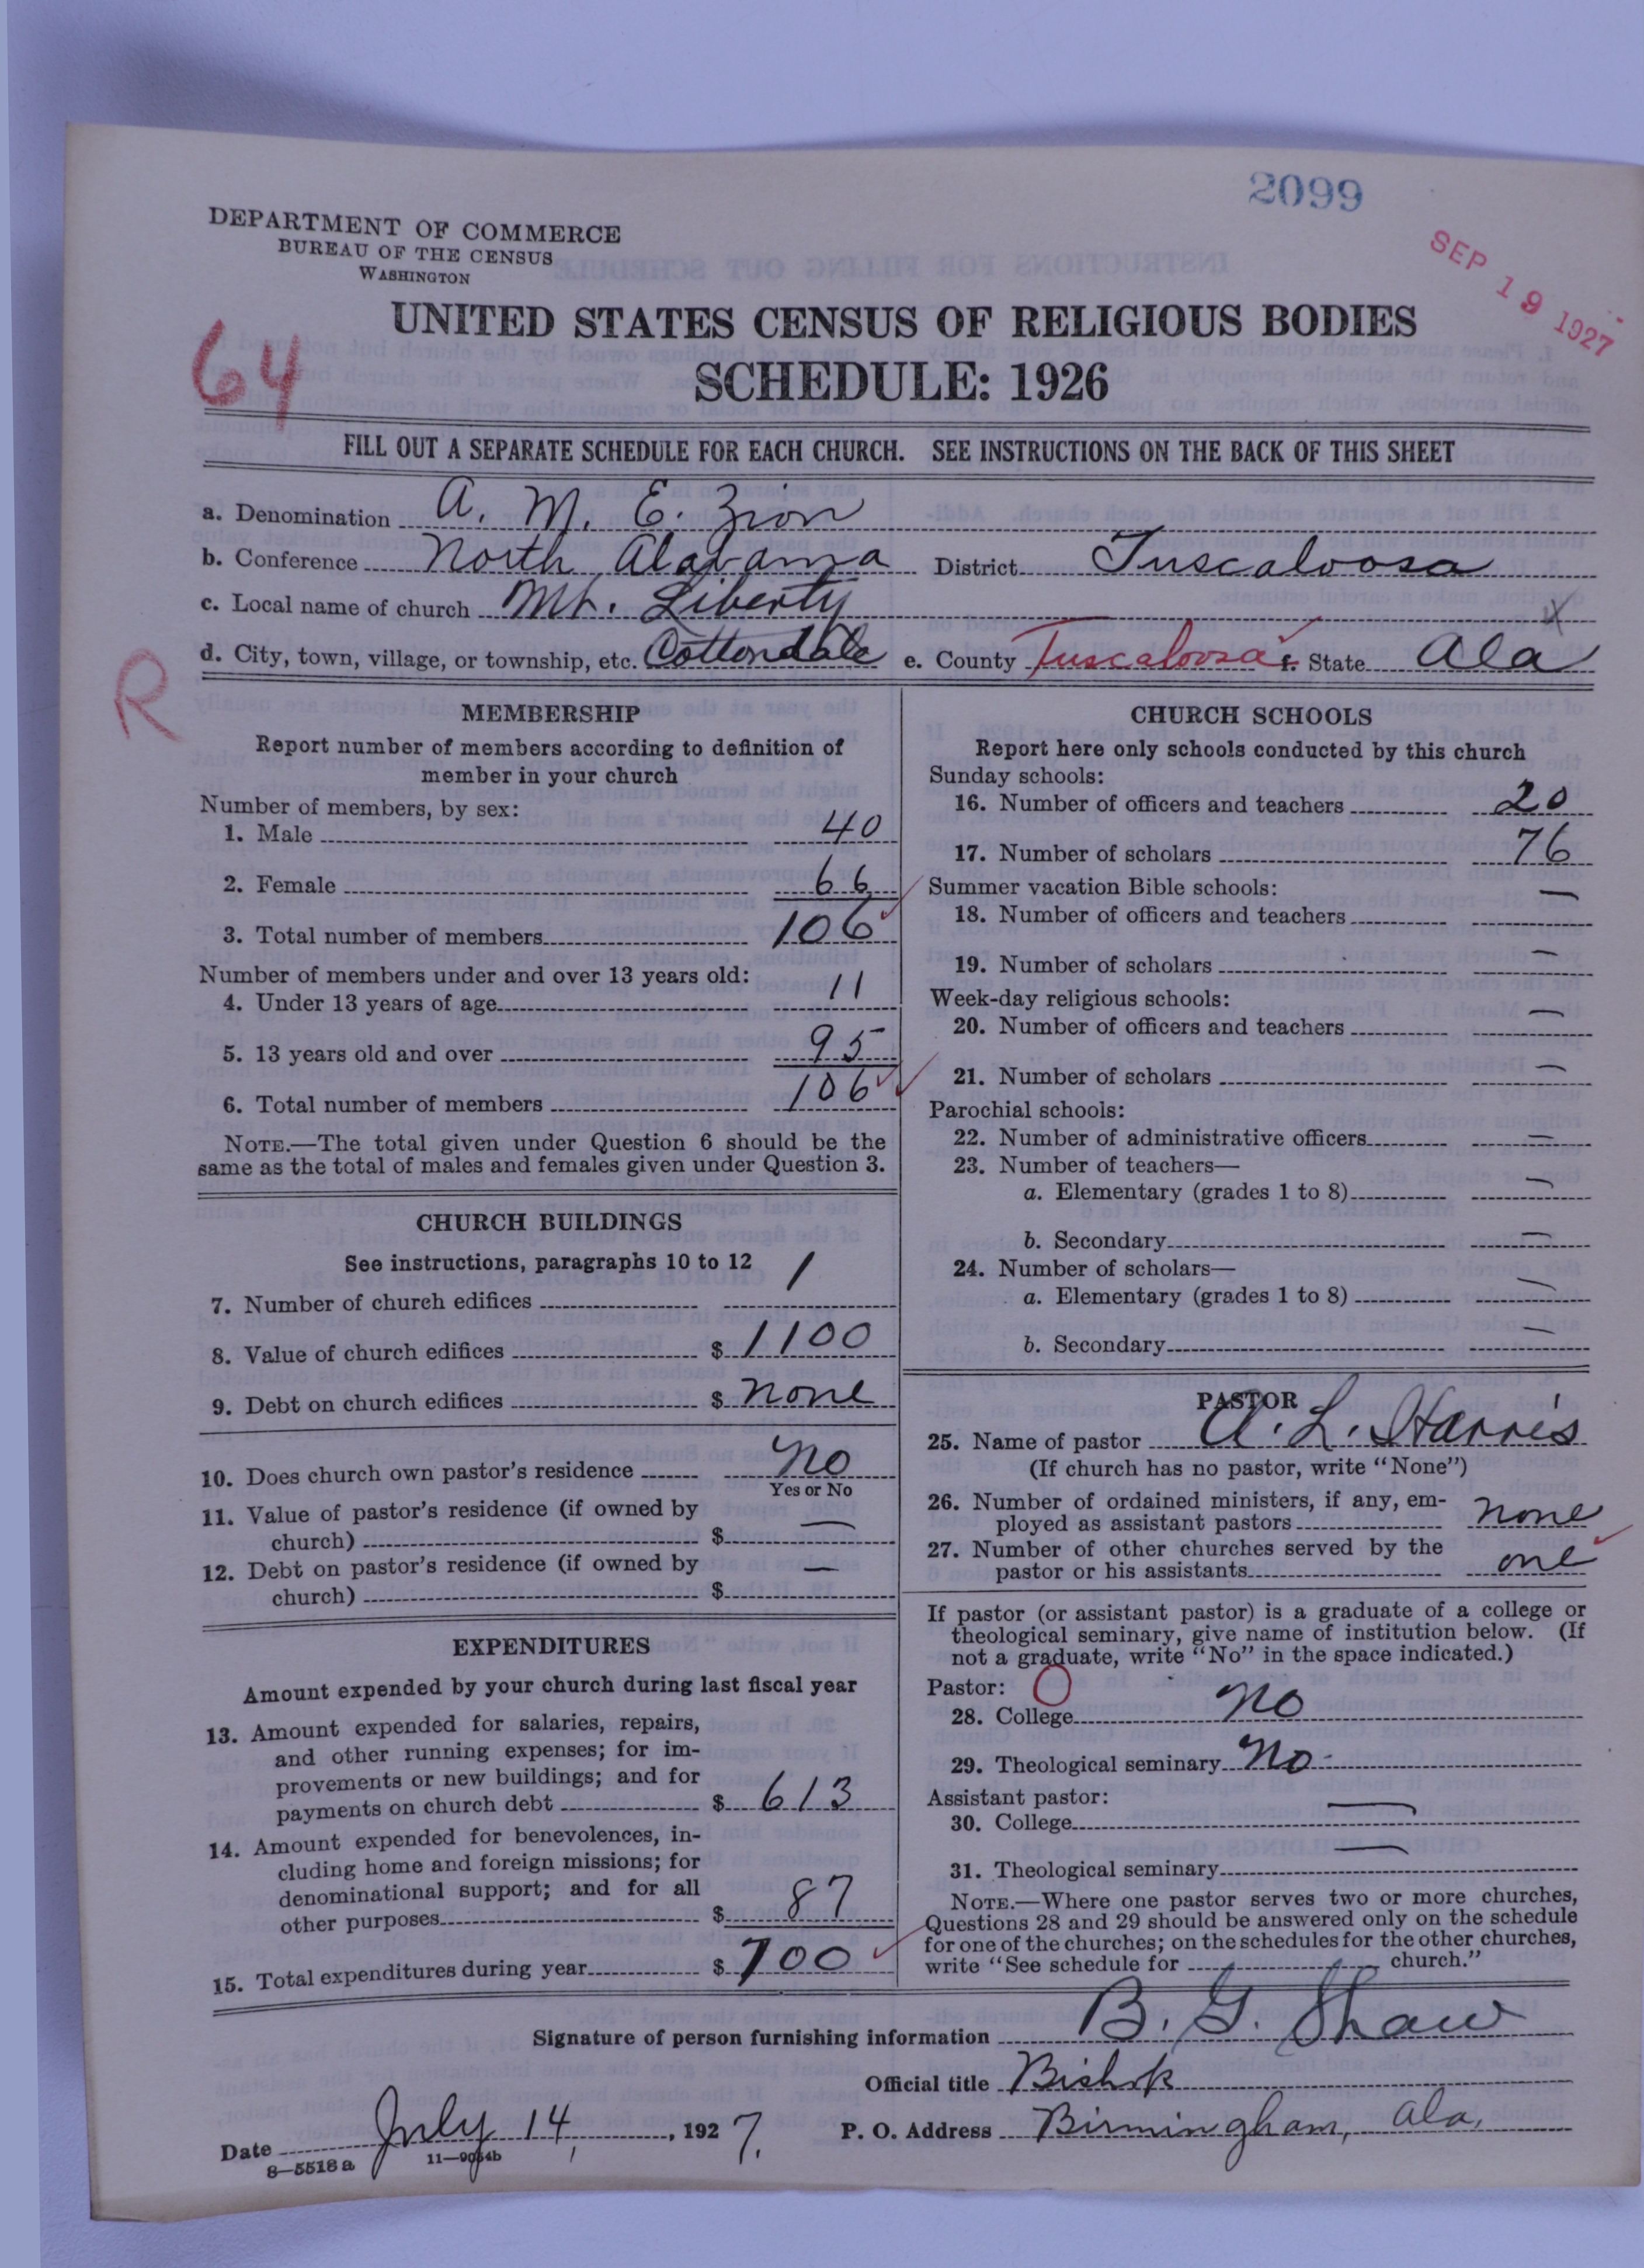 2099
SEP 19 1927
DEPARTMENT OF COMMERCE
BUREAU OF THE CENSUS
WASHINGTON
UNITED STATES CENSUS OF RELIGIOUS BODIES
64
SCHEDULE: 1926
FILL OUT A SEPARATE SCHEDULE FOR EACH CHURCH. SEE INSTRUCTIONS ON THE BACK OF THIS SHEET
a. Denomination A. M. E. Zion
b. Conference North Alabama District Tuscaloosa
c. Local name of church Mt. Liberty
d. City, town, village, or township, etc. Cottondale e. County Tuscaloosa f. State Ala
R
MEMBERSHIP
Report number of members according to definition of
member in your church
Number of members, by sex:
1. Male 40
2. Female 66
3. Total number of members 106
Number of members under and over 13 years old:
4. Under 13 years of age 11
5. 13 years old and over 95
6. Total number of members 106
NOTE.—The total given under Question 6 should be the
same as the total of males and females given under Question 3.
CHURCH BUILDINGS
See instructions, paragraphs 10 to 12
7. Number of church edifices 1
8. Value of church edifices $ 1100
9. Debt on church edifices $ none
10. Does church own pastor's residence No
Yes or No
11. Value of pastor's residence (if owned by
church) $ —
12. Debt on pastor's residence (if owned by
church) $ —
EXPENDITURES
Amount expended by your church during last fiscal year
13. Amount expended for salaries, repairs,
and other running expenses; for im-
provements or new buildings; and for
payments on church debt $ 613
14. Amount expended for benevolences, in-
cluding home and foreign missions; for
denominational support; and for all
other purposes $ 87
15. Total expenditures during year $ 700
CHURCH SCHOOLS
Report here only schools conducted by this church
Sunday schools:
16. Number of officers and teachers 20
17. Number of scholars 76
Summer vacation Bible schools:
18. Number of officers and teachers —
19. Number of scholars —
Week-day religious schools:
20. Number of officers and teachers —
21. Number of scholars —
Parochial schools:
22. Number of administrative officers —
23. Number of teachers—
a. Elementary (grades 1 to 8) —
b. Secondary —
24. Number of scholars—
a. Elementary (grades 1 to 8) —
b. Secondary —
PASTOR
25. Name of pastor A. L. Harris
(If church has no pastor, write "None")
26. Number of ordained ministers, if any, em-
ployed as assistant pastors none
27. Number of other churches served by the
pastor or his assistants one
If pastor (or assistant pastor) is a graduate of a college or
theological seminary, give name of institution below. (If
not a graduate, write "No" in the space indicated.)
Pastor: O
28. College No
29. Theological seminary No
Assistant pastor:
30. College —
31. Theological seminary —
NOTE.—Where one pastor serves two or more churches,
Questions 28 and 29 should be answered only on the schedule
for one of the churches; on the schedules for the other churches,
write "See schedule for church."
Signature of person furnishing information B. G. Shaw
Official title Bishop
Date July 14, 1927. P. O. Address Birmingham, Ala.
8—5518a 11—9054b